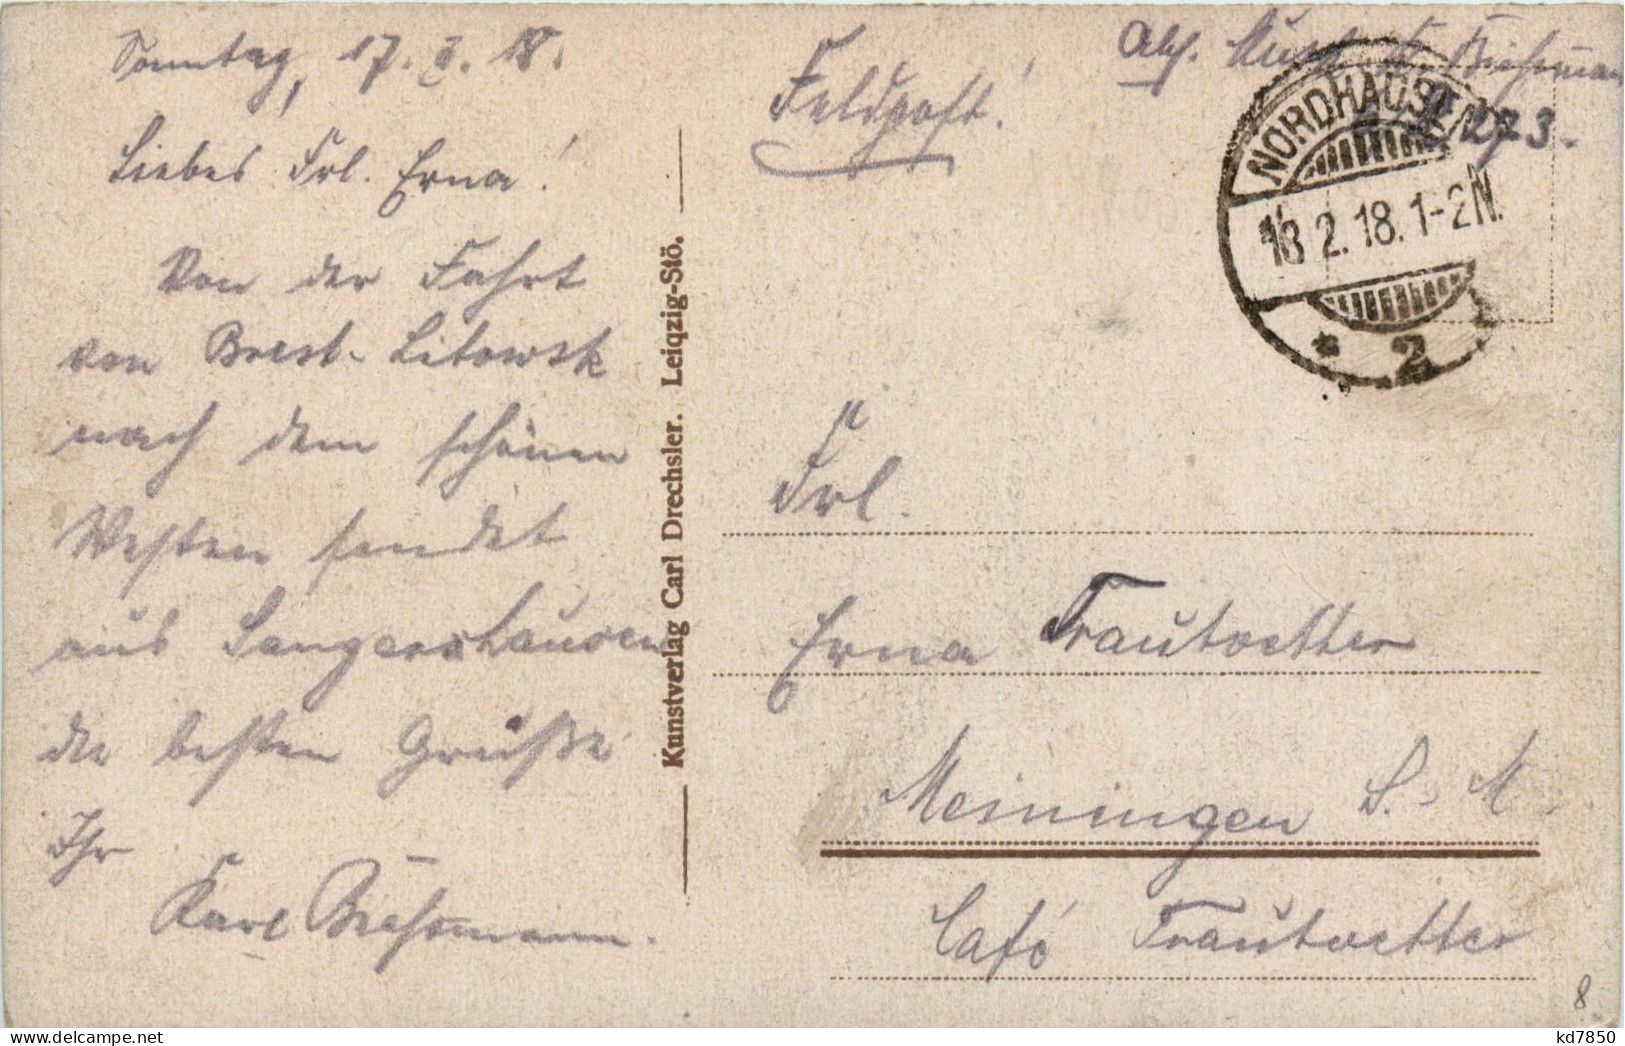 Sonntag, 17. II. 18.
Liebes Frl. Erna!
Von der Fahrt
von Brest-Litowsk
nach dem schönen
Westen sendet
aus Sangershausen
die besten Grüße
Ihr
Karl Bießmann.
Kunstverlag Carl Drechsler. Leipzig-Stö.
Feldpost!
Abs. Bießmann
273.
NORDHAUSEN
18 2.18.1-2N.
* 2
Frl.
Erna Trautvetter
Meiningen S.-M.
Café Trautvetter
8
kd7850